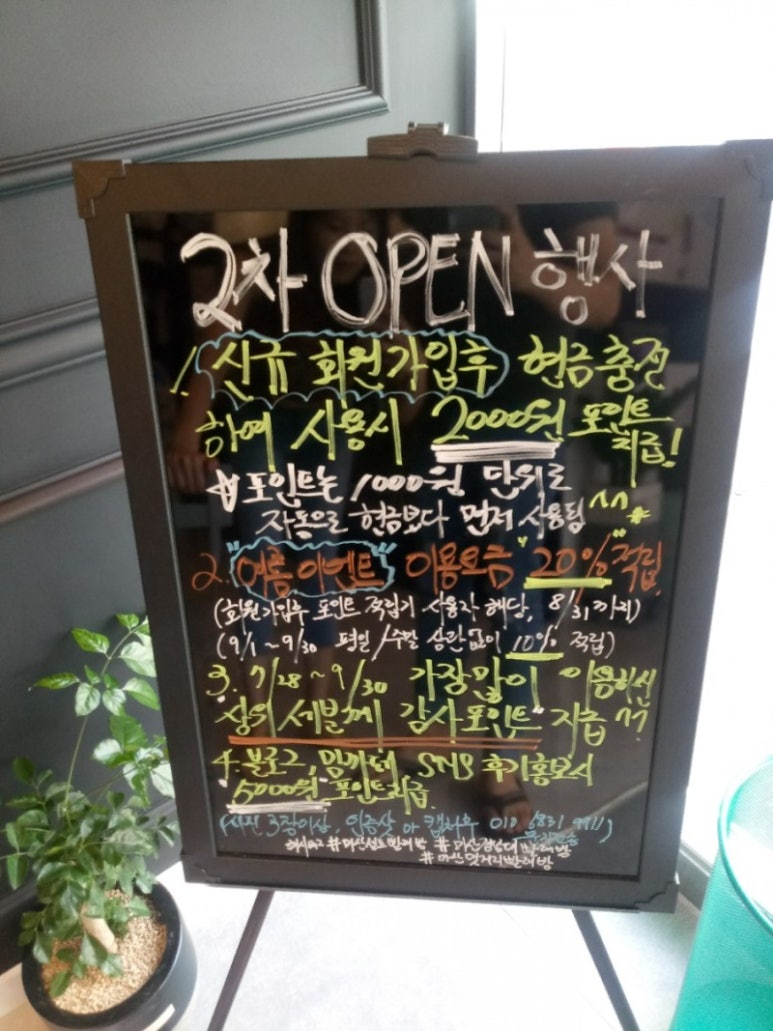 2차 OPEN 행사
1. 신규 회원가입후 현금충전
하여 사용시 2000원 포인트
지급!
☆포인트는 1000원 단위로
자동으로 현금보다 먼저 사용됨 ^^
2. "여름이벤트" 이용요금 "20%" 적립
(회원가입후 포인트 적립기 사용자 해당, 8/31까지)
(9/1~9/30 평일/주말 상관없이 10% 적립)
3. 7/28~9/30 가장많이 이용하신
상위 세분께 감사포인트 지급 ^^
4. 블로그, 맘까페 SNS 후기홍보시
5000원 포인트지급
(사진 3장이상, 인증샷 or 캡쳐후 010 6831 9911)
문자전송
#마산셀프빨래방 #마산경남대빨래방
#마산댓거리빨래방